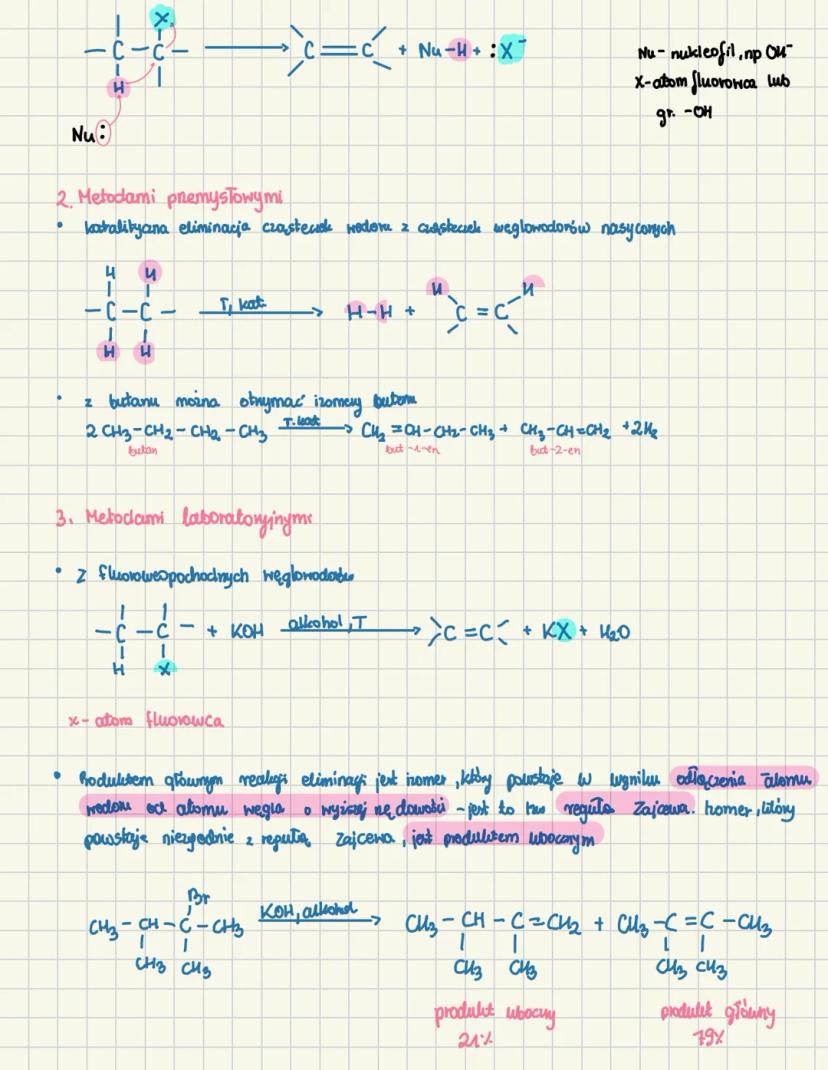 X
- C - C - ⟶ C = C + Nu-H + :X⁻
H
Nu:
Nu- nukleofil, np OH⁻
X-atom fluorowca lub
gr. -OH
2. Metodami przemysłowymi
• katalityczna eliminacja cząsteczek wodoru z cząsteczek węglowodorów nasyconych
H H
H H
- C - C - T, kat. ⟶ H-H + C = C
H H
• z butanu można otrzymać izomery butenu
2 CH3-CH2-CH2-CH3 T.kat ⟶ CH2=CH-CH2-CH3 + CH3-CH=CH2 +2H2
butan but-1-en but-2-en
3. Metodami laboratoryjnymi
• Z fluorowcopochodnych węglowodorów
- C - C - + KOH alkohol, T ⟶ C = C + KX + H2O
H X
x- atom fluorowca
• Produktem głównym reakcji eliminacji jest izomer, który powstaje w wyniku odłączenia atomu
wodoru od atomu węgla o wyższej rzędowości - jest to tzw reguła Zajcewa. Izomer, który
powstaje niezgodnie z regułą Zajcewa, jest produktem ubocznym
Br
CH3 - CH - C - CH3 KOH, alkohol ⟶ CH3 - CH - C = CH2 + CH3 - C = C - CH3
CH3 CH3 CH3 CH3 CH3 CH3
produkt uboczny produkt główny
21% 79%